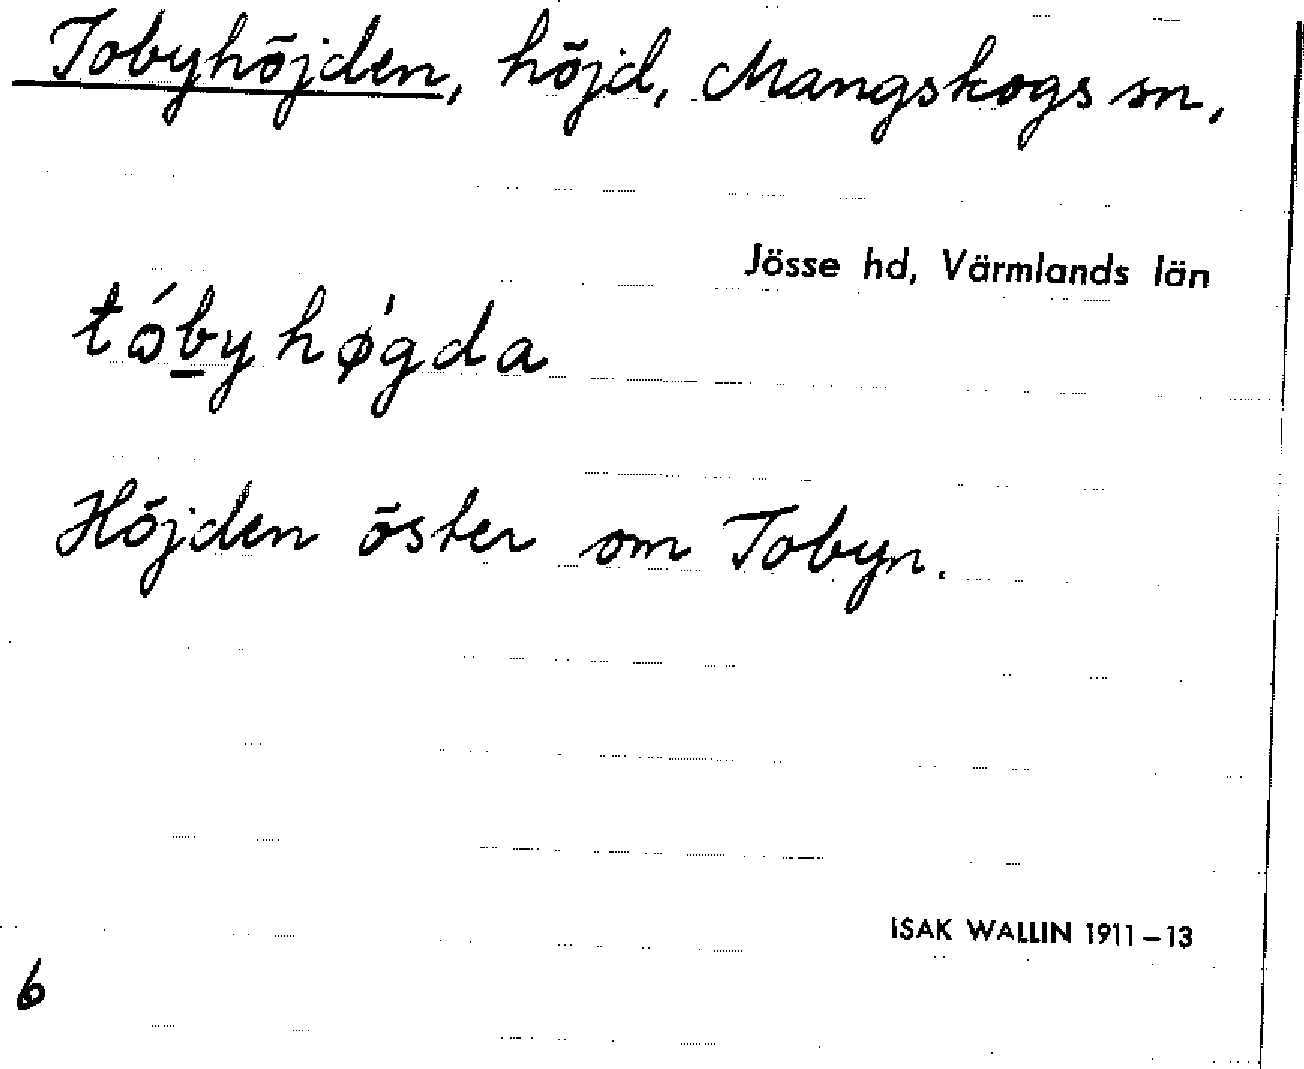 Tobyhöjden, höjd, Mangskogs sn,
Jösse hd, Värmlands län
tóbyhǿgda
Höjden öster om Tobyn.
ISAK WALLIN 1911–13
6